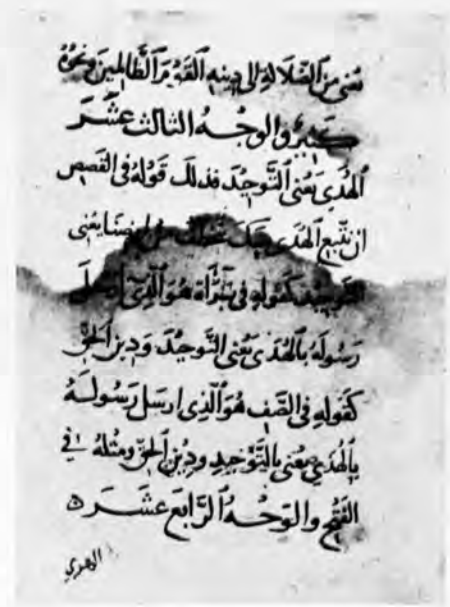 يعني من الضلالة الى دينه القوم الظالمين ونحوه
كثير والوجه الثالث عشر
الهدى يعنى التوحيد فذلك قوله فى القصص
ان نتبع الهدى معك نتخطف من ارضنا يعنى
التوحيد كقوله فى براة هو الذى ارسل
رسوله بالهدى يعنى التوحيد ودين الحق
كقوله فى الصف هو الذى ارسل رسوله
بالهدى يعنى بالتوحيد ودين الحق ومثله فى
الفتح والوجه الرابع عشر ه
الهدى